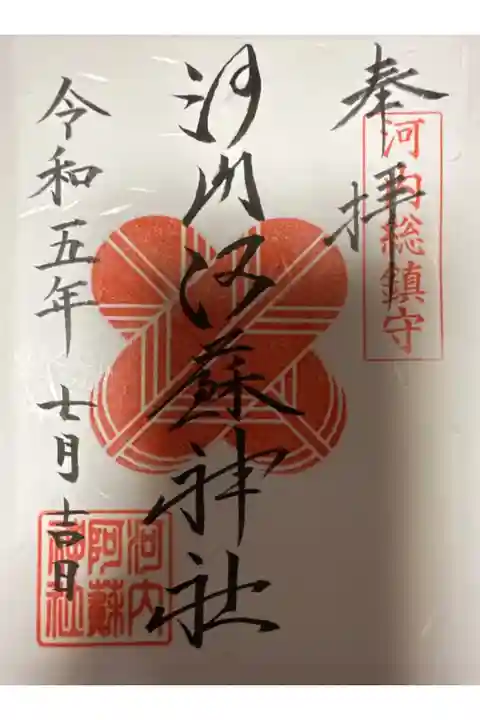 奉拝
河内総鎮守
河内阿蘇神社
令和五年 七月吉日
河内
阿蘇
神社